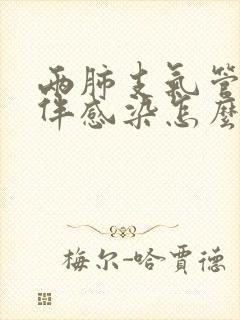 两肺支气管
伴感染怎麼
梅尔-哈賈德